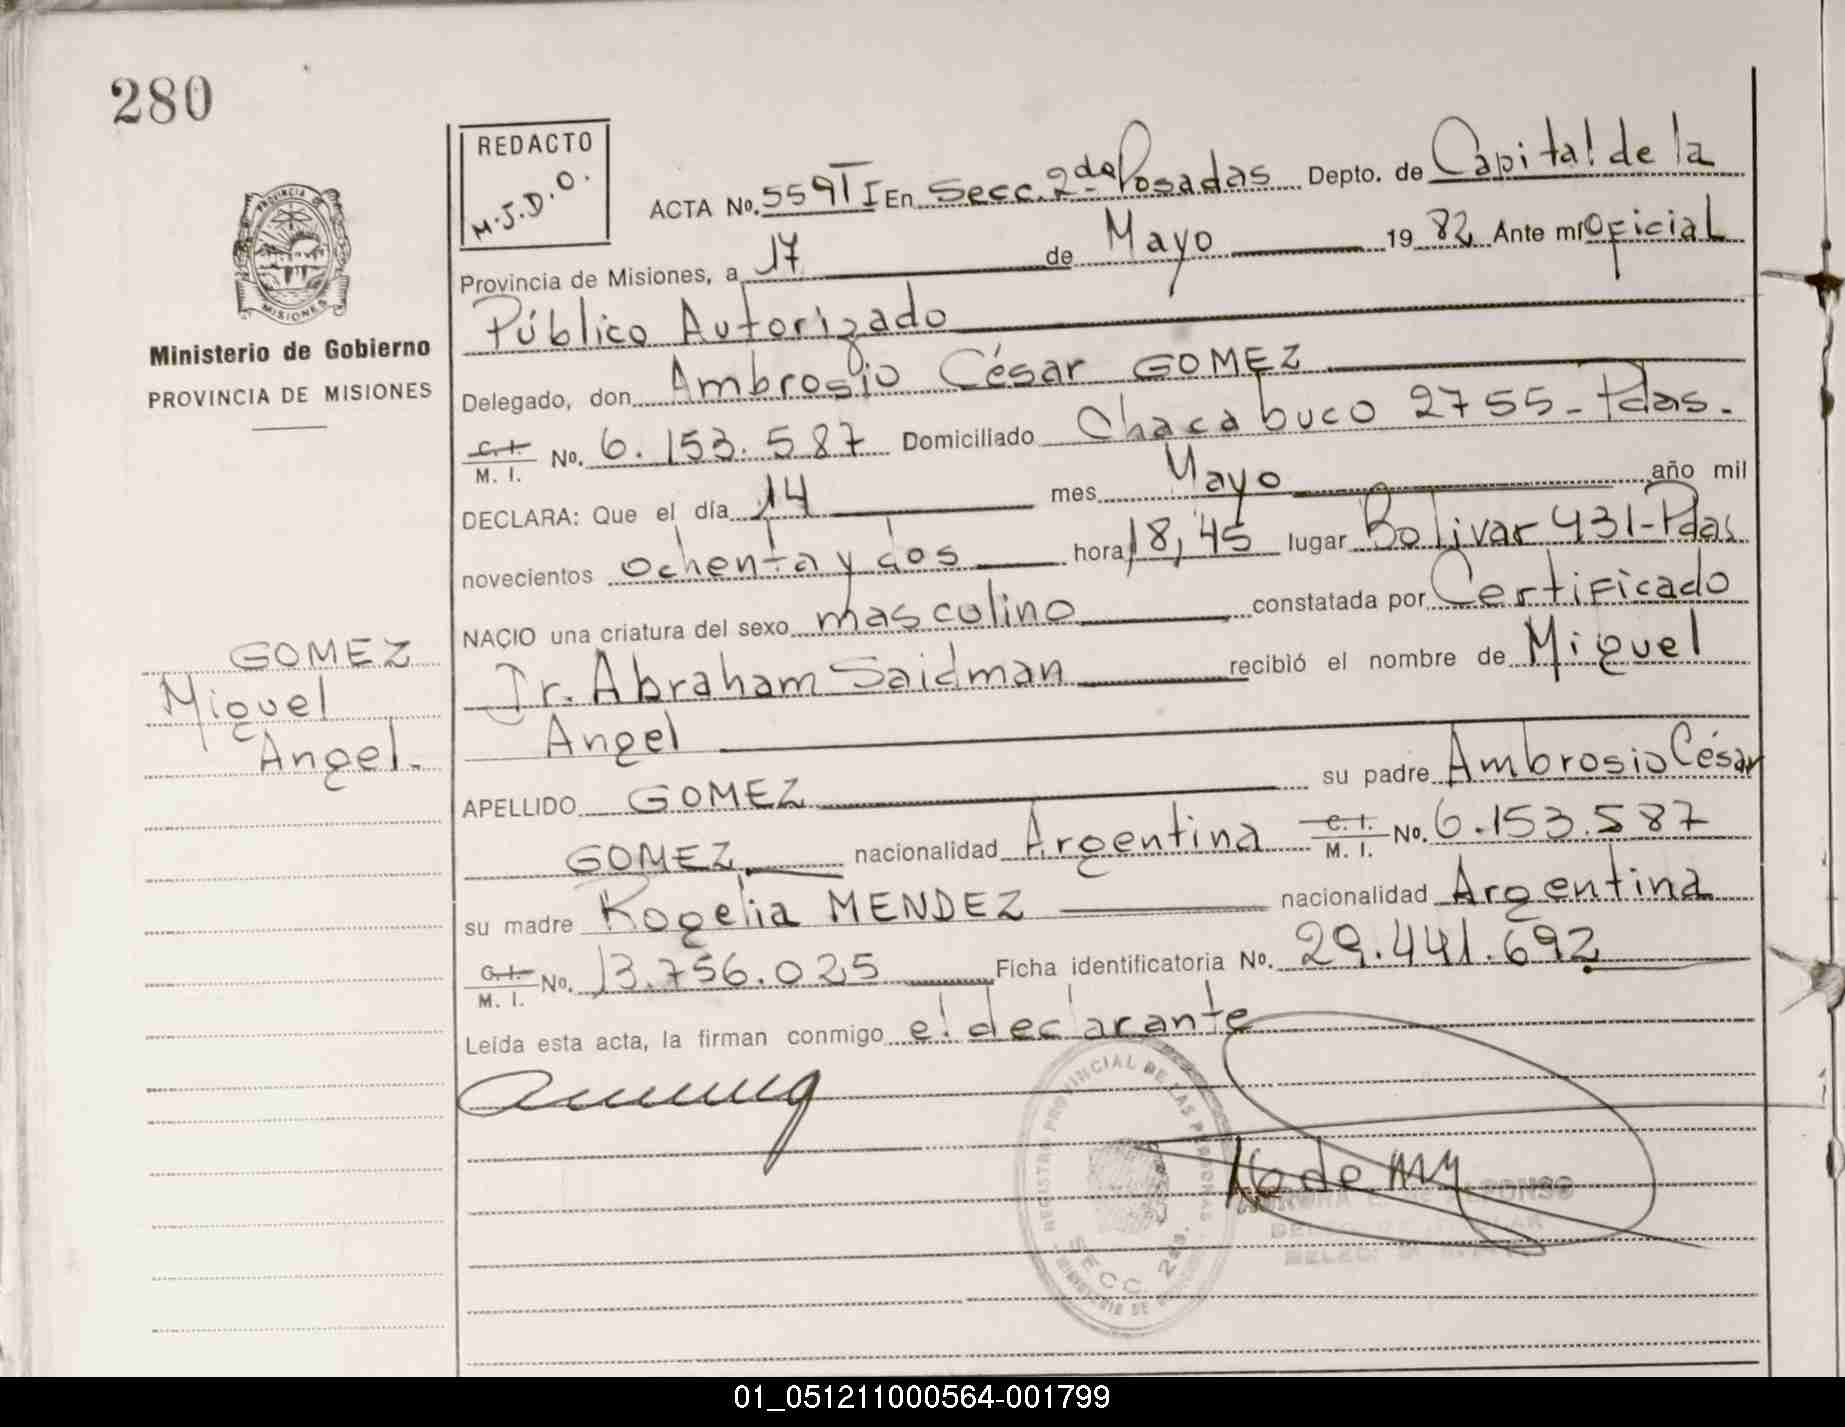 280
REDACTO
M.J.D.O.
ACTA No. 559 T I En Secc. 2da Posadas Depto. de Capital de la
Provincia de Misiones, a 17 de Mayo 19 82 Ante mí Oficial
Público Autorizado
PROVINCIA DE
MISIONES
Ministerio de Gobierno
PROVINCIA DE MISIONES
Delegado, don Ambrosio César GOMEZ
C. I.
M. I. No. 6.153.587 Domiciliado Chacabuco 2755-Pdas.
DECLARA: Que el día 14 mes Mayo año mil
novecientos ochenta y dos hora 18,45 lugar Bolivar 431-Pdas
NACIO una criatura del sexo masculino constatada por Certificado
Dr. Abraham Saidman recibió el nombre de Miguel
Angel
GOMEZ
Miguel
Angel.
APELLIDO GOMEZ su padre Ambrosio César
GOMEZ nacionalidad Argentina C. I.
M. I. No. 6.153.587
su madre Rogelia MENDEZ nacionalidad Argentina
C. I.
M. I. No. 13.756.025 Ficha identificatoria No. 29.441.692
Leída esta acta, la firman conmigo el declarante
REGISTRO PROVINCIAL DE LAS PERSONAS
SECC. 2da.
01_051211000564-001799